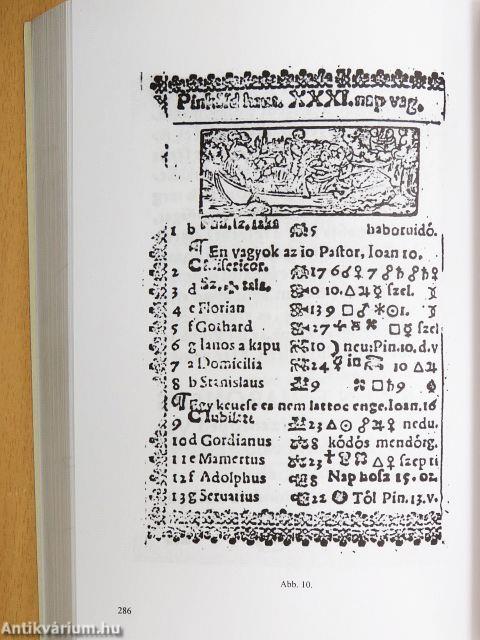 Pinkösd haua. XXXI. nap vag.
1 b 5 haboruidó.
¶ En vagyok az io Pastor, Ioan 10.
2 C Misericor. 17 6 ☌ ♀ 7 ♄
3 d Sz. 10 10. △ ♃ ☿ szel.
4 e Florian 13 9 □ ♂ ✶ ☉ 1.
5 f Gothard 27 □ ☿ szel
6 g Ianos a kapu 10 ) neu: Pin. 10. d. v
7 a Domicilia 24
8 b Stanislaus 9 □ ♄ 9
¶ Egy keuese es nem lattoc enge. Ioan. 16
9 C Iubilate 23 △ ☉ ♃ ♀ nedu.
10 d Gordianus 8 kódós mendórg.
11 e Mamertus 23 △ ♀ szep ti
12 f Adolphus 8 Nap hosz 15. oz.
13 g Seruatius 22 Tól Pin. 13. v.
Abb. 10.
286
Antikvárium.hu